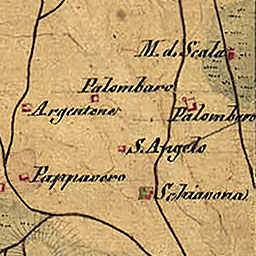 M. d. Scala
Palombaro
Argentone
Palombaro
S. Angelo
Pappavero
Schiavona